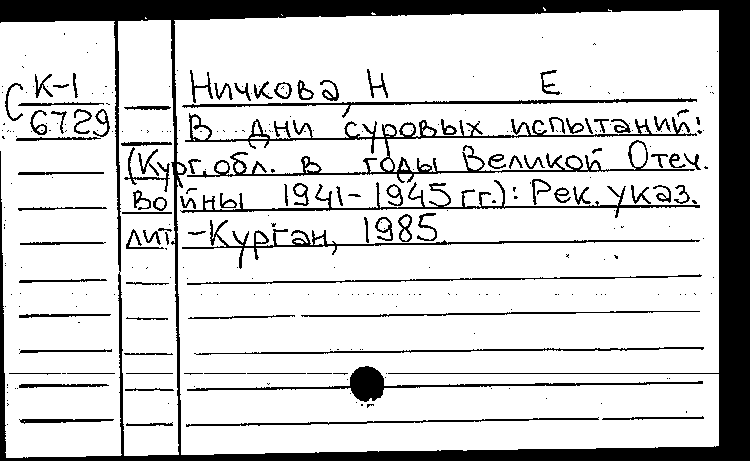 С К-1 Ничкова, Н Е
6729 В дни суровых испытаний:
(Кург. обл. в годы Великой Отеч.
Войны 1941-1945 гг.): Рек. указ.
лит. -Курган, 1985.